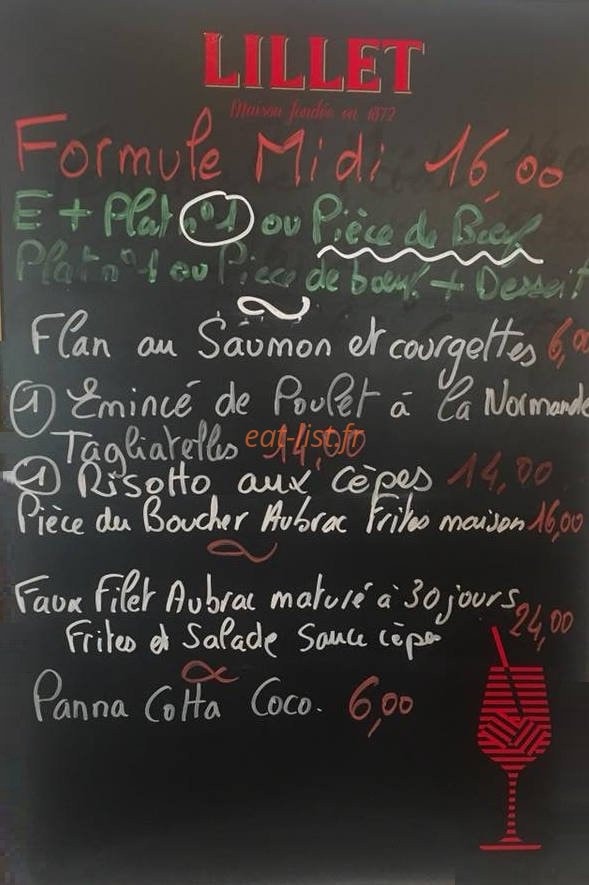 LILLET
Maison fondée en 1872
Formule Midi 16,00
E + Plat n°1 ou Pièce de Bœuf
Plat n°1 ou Pièce de bœuf + Dessert
Flan au Saumon et courgettes 6,00
① Émincé de Poulet à la Normande
Tagliatelles 14,00
eat-list.fr
① Risotto aux cèpes 14,00
Pièce du Boucher Aubrac Frites maison 16,00
Faux Filet Aubrac maturé à 30 jours
Frites et Salade Sauce cèpe 24,00
Panna Cotta Coco. 6,00